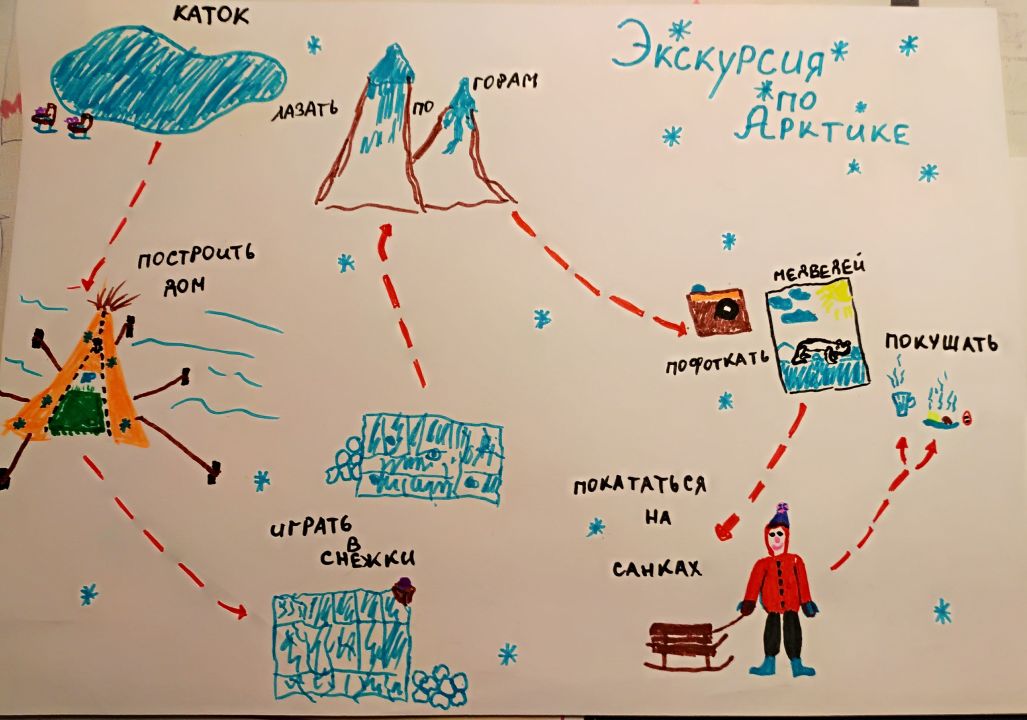 Экскурсия
по
Арктике
КАТОК
ЛАЗАТЬ ПО ГОРАМ
ПОСТРОИТЬ
ДОМ
ИГРАТЬ
В
СНЕЖКИ
ПОФОТКАТЬ
МЕДВЕДЕЙ
ПОКАТАТЬСЯ
НА
САНКАХ
ПОКУШАТЬ